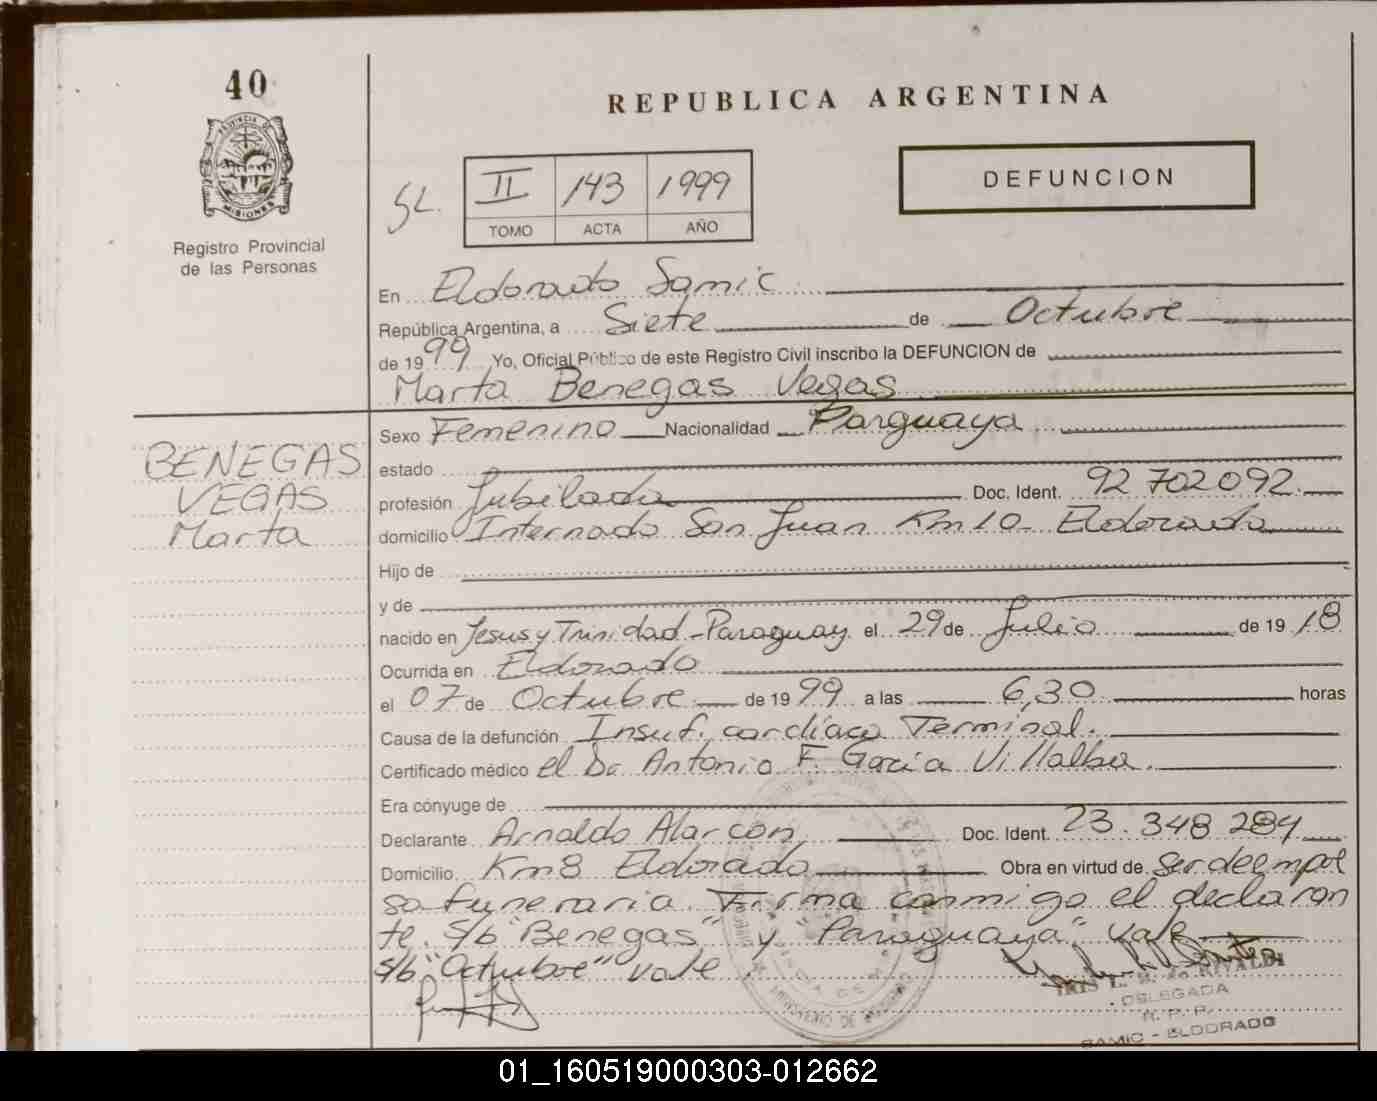 40
REPUBLICA ARGENTINA
PROVINCIA DE
MISIONES
Registro Provincial
de las Personas
SL.
II 143 1999
TOMO ACTA AÑO
DEFUNCION
En Eldorado Samic
República Argentina, a Siete de Octubre
de 1999 Yo, Oficial Público de este Registro Civil inscribo la DEFUNCION de
Marta Benegas Vegas
BENEGAS
VEGAS
Marta
Sexo Femenino Nacionalidad Parguaya
estado
profesión Jubilada Doc. Ident. 92 702 092
domicilio Internado San Juan Km 10 - Eldorado
Hijo de
y de
nacido en Jesus y Trinidad - Paraguay el 29 de Julio de 1918
Ocurrida en Eldorado
el 07 de Octubre de 1999 a las 6,30 horas
Causa de la defunción Insuf. cardiaca Terminal.
Certificado médico el Dr Antonio F. Garcia Villalba.
Era cónyuge de
Declarante Arnaldo Alarcon Doc. Ident. 23.348 284
Domicilio Km 8 Eldorado Obra en virtud de Ser de empre
sa funeraria. Firma conmigo el declaran
te. S/b "Benegas" y "Paraguaya" vale
S/b "Octubre" vale
IRIS L. RIVALDI
DELEGADA
R. P. P.
SAMIC - ELDORADO
01_160519000303-012662